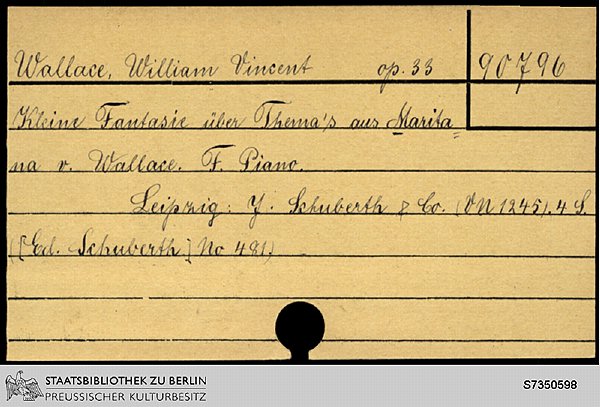 Wallace, William Vincent op. 33 90796
Kleine Fantasie über Thema's aus Marita=
na v. Wallace. F. Piano.
Leipzig: J. Schuberth & Co. (VN 1245). 4 S.
([Ed. Schuberth] No 481)
STAATSBIBLIOTHEK ZU BERLIN
PREUSSISCHER KULTURBESITZ
S7350598